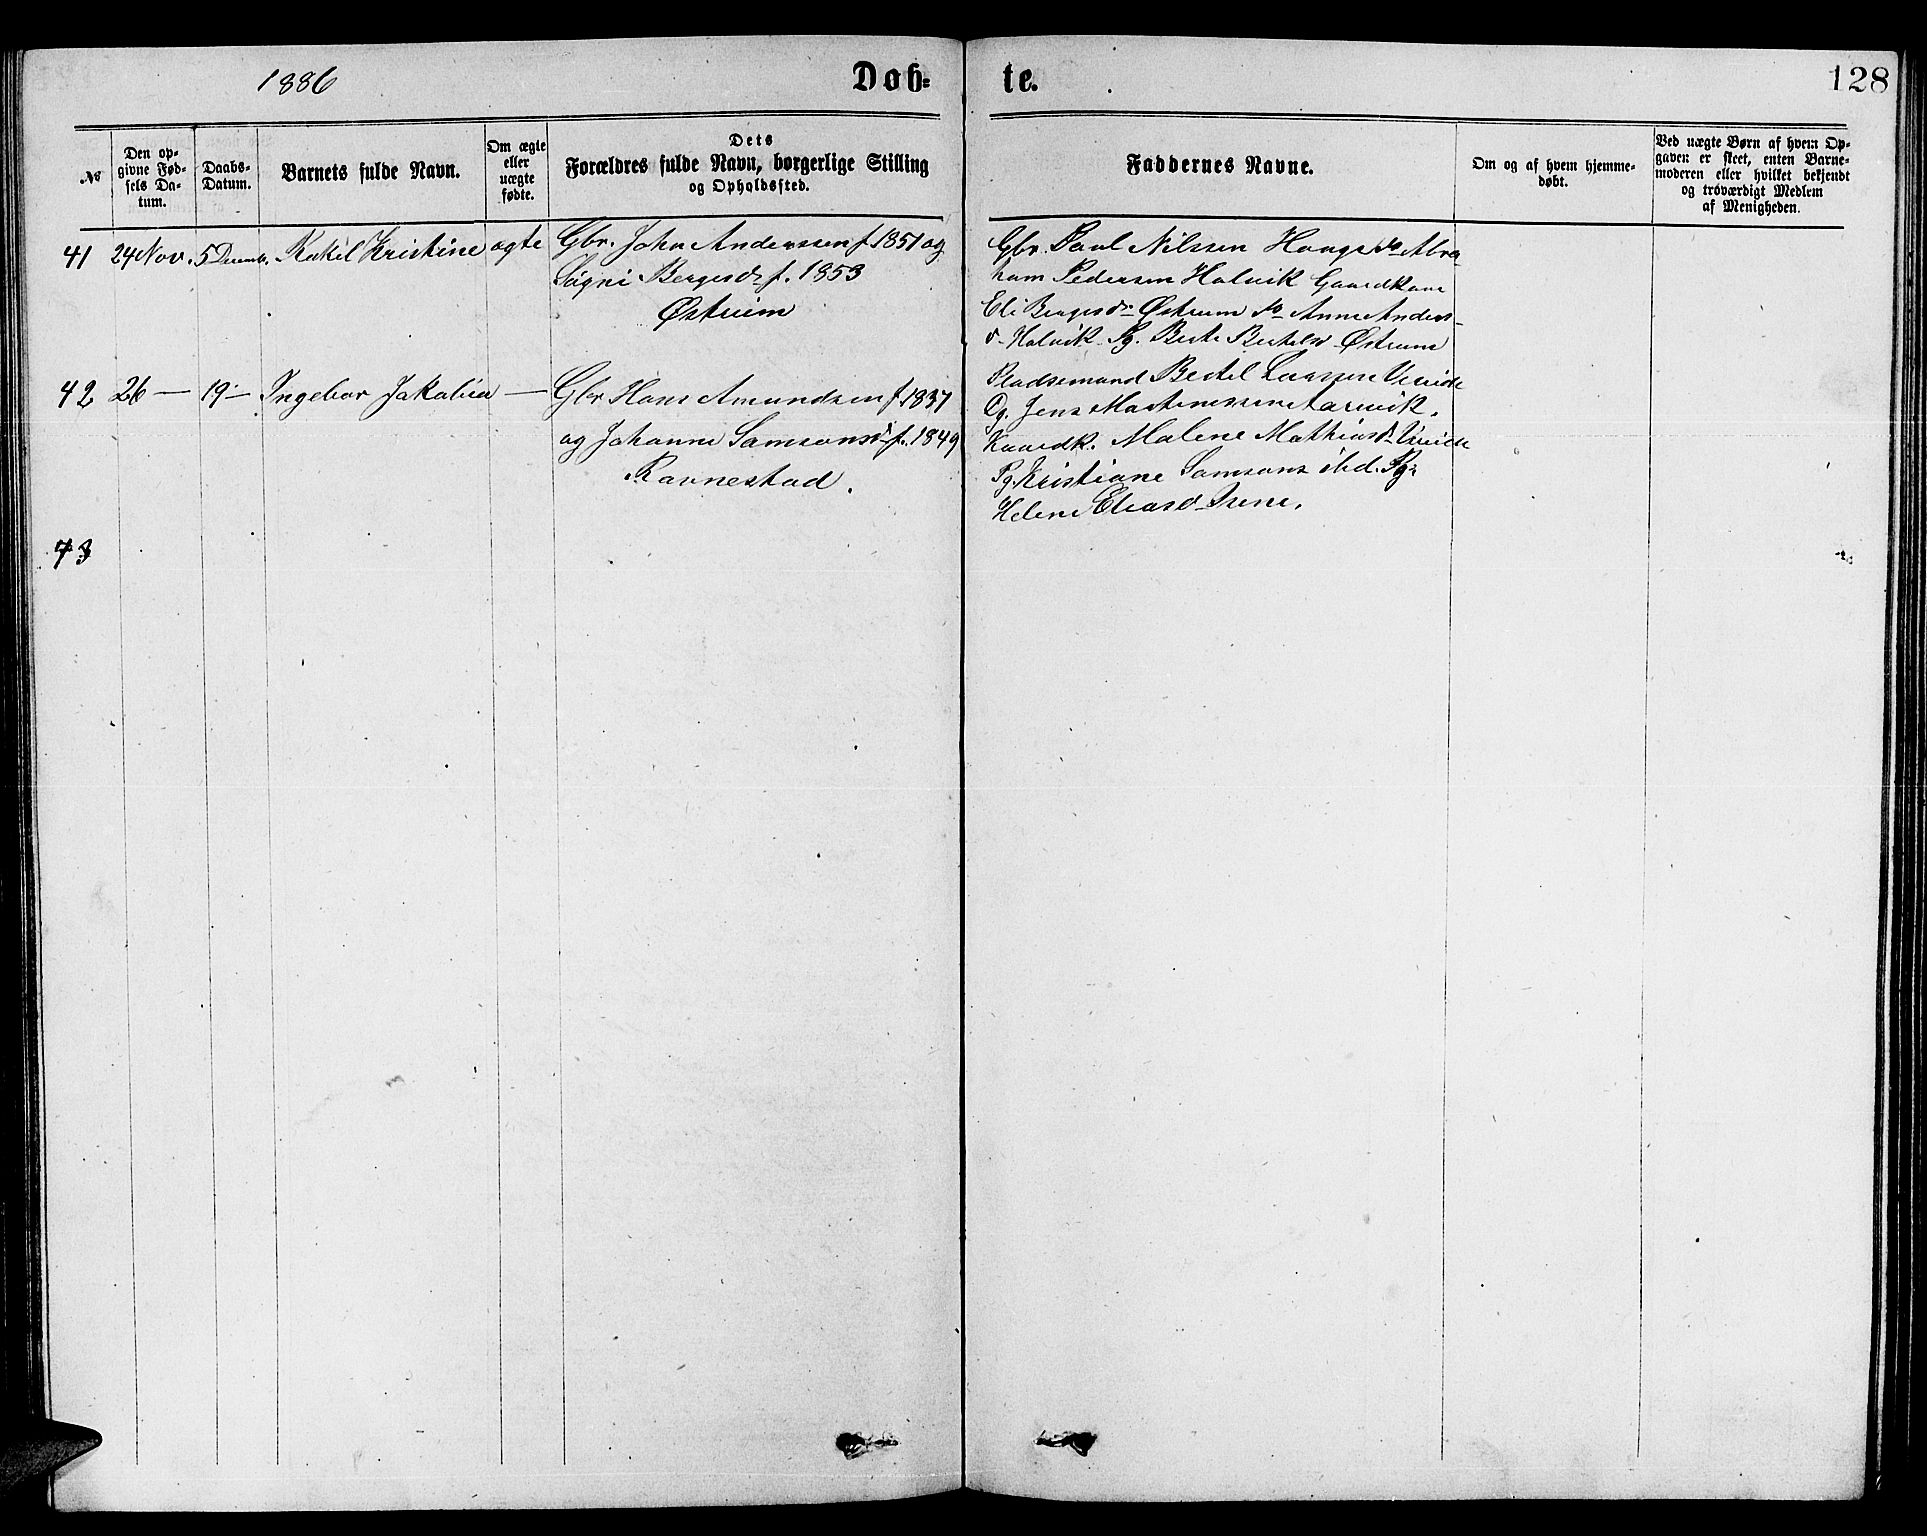 1886
Døb-
te.
128
№
Den op-
givne Fød-
sels Da-
tum.
Daabs-
Datum.
Barnets fulde Navn.
Om ægte
eller
uægte
fødte.
Dets
Forældres fulde Navn, borgerlige Stilling
og Opholdssted.
Faddernes Navne.
Om og af hvem hjemme-
døbt.
Ved uægte Børn af hvem Op-
gaven er skeet, enten Barne-
moderen eller hvilket bekjendt
og troværdigt Medlem
af Menigheden.
41 24 Nov. 5 Decemb. Rakel Kristine ægte
Gbr. John Anderssen f. 1851 og
Signi Bergesd. f. 1853
Østreim
Gbr. Paul Nilssen Hauge do Abra-
ham Pedersen Halvik Gaardkone
Eli Bergesd. Østreim do Anne Anders-
d. Halvik. Pg. Berte Bertelsd Østreim
42 26 — 19 — Ingebor Jakobia —
Gbr Hans Amundsen f. 1837
og Johanne Samsonsd f. 1849
Ravnestad.
Pladsemand Bertel Larssen
Og. Jens Martinessen
Gaardk. Malene Mathiasd
Pg. Kristiane Samsons ibd. Pg.
Helene Eliasd
43